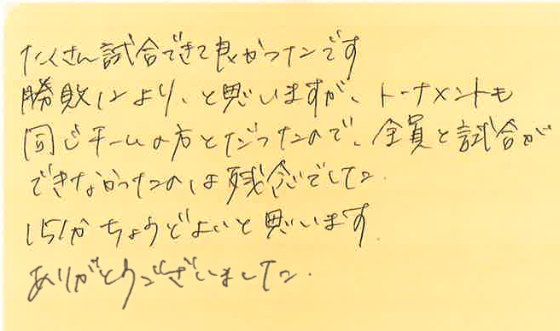 たくさん試合できて良かったです
勝敗により、と思いますが、トーナメントも
同じチームの方とだったので、全員と試合が
できなかったのは残念でした
15分ちょうどよいと思います
ありがとうございました.